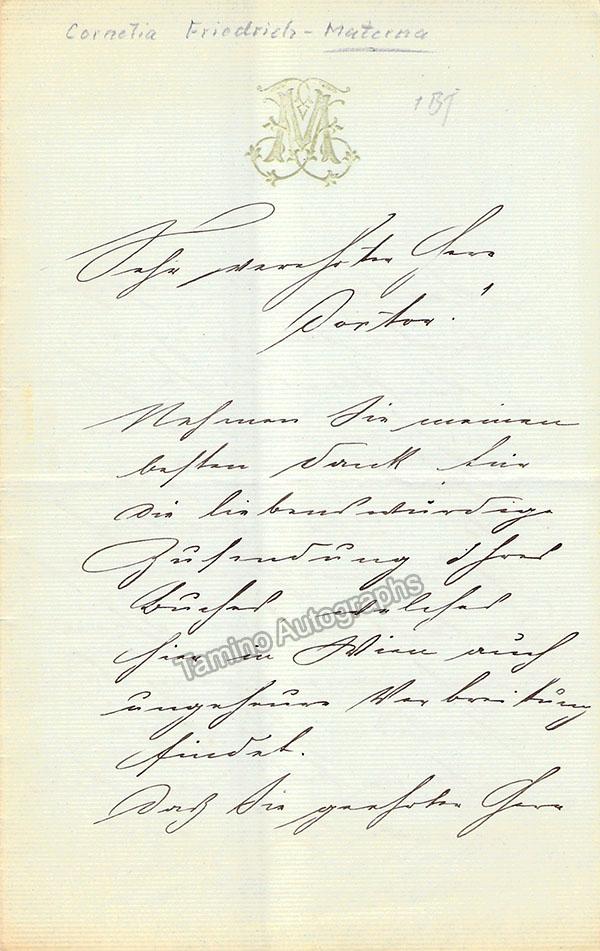 Cornelia Friedrich-Materna
1 Bf
M
Sehr verehrter Herr
Doctor!
Nehmen Sie meinen
besten Dank für
die liebenswürdige
Zusendung Ihres
Buches welches
hier in Wien auch
ungeheure Verbreitung
findet.
Daß Sie geehrter Herr
Tamino Autographs